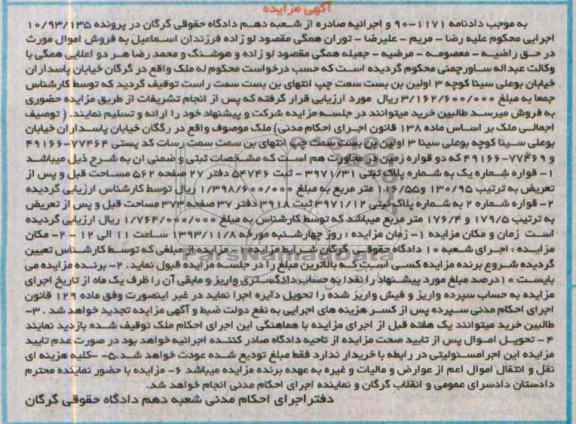 آگهی مزایده
به موجب دادنامه ۱۱۷۱-۹۰ و اجرائیه صادره از شعبه دهم دادگاه حقوقی گرگان در پرونده ۱۰/۹۳/۱۳۵
اجرایی محکوم علیه رضا - مریم - علیرضا - توران همگی مقصود لو زاده فرزندان اسماعیل به فروش اموال مورث
در حق راضیه - معصومه - مرضیه - جمیله همگی مقصود لو زاده و هوشنگ و محمد رضا هر دو اعلایی همگی با
وکالت عبداله ساورچمنی محکوم گردیده است که حسب درخواست محکوم له ملک واقع در گرگان خیابان پاسداران
خیابان بوعلی سینا کوچه ۳ اولین بن بست سمت چپ انتهای بن بست سمت راست توقیف گردید که توسط کارشناس
جمعا به مبلغ ۳/۱۶۲/۶۰۰/۰۰۰ ریال مورد ارزیابی قرار گرفته که پس از انجام تشریفات از طریق مزایده حضوری
به فروش میرسد طالبین خرید میتوانند در جلسه مزایده شرکت و پیشنهاد خود را ارائه و تسلیم نمایند. ( توصیف
اجمالی ملک بر اساس ماده ۱۳۸ قانون اجرای احکام مدنی) ملک موصوف واقع در رگگان خیابان پاسداران خیابان
بوعلی سینا کوچه بوعلی سینا ۳ اولین بن بست سمت چپ انتهای بن بست سمت رسات کد پستی ۷۷۴۶۴-۴۹۱۶۶
و ۷۷۴۶۹-۴۹۱۶۶ که دو قواره زمین در مجاورت هم است که مشخصات ثبتی و ضمنی ان به شرح ذیل میباشد
۱- قواره شماره یک به شماره پلاک ثبتی ۳۹۷۱/۳۱- ثبت ۵۴۷۴۶ دفتر ۲۷ صفحه ۵۶۲ مساحت قبل و پس از
تعریض به ترتیب ۱۳۰/۹۵ و ۱۱۶/۵۵ متر مربع به مبلغ ۱/۳۹۸/۶۰۰/۰۰۰ ریال توسط کارشناس ارزیابی گردیده
۲- قواره شماره ۲ به شماره پلاک ثبتی ۳۹۷۱/۱۲ ثبت ۳۹۱۸ دفتر ۳۷ صفحه ۳۷۳ مساحت قبل و پس از تعریض
به ترتیب ۱۷۹/۵ و ۱۷۶/۴ متر مربع میباشد که توسط کارشناس به مبلغ ۱/۷۶۴/۰۰۰/۰۰۰ ریال ارزیابی گردیده
است زمان و مکان مزایده ۱- زمان مزایده : روز چهارشنبه مورخه ۱۳۹۳/۱۱/۸ ساعت ۱۱ الی ۱۲ - ۲- مکان
مزایده : اجرای شعبه ۱۰ دادگاه حقوقی گرگان شرایط مزایده ۱- مزایده از مبلغی که توسط کارشناس تعیین
گردیده شروع برنده مزایده کسی است که بالاترین مبلغ را در جلسه مزایده قبول نماید. ۲- برنده مزایده می
بایست ۱۰ درصد مبلغ مورد پیشنهاد را نقدا به حساب دادگستری واریز و مابقی آن را ظرف یک ماه از تاریخ اجرای
مزایده به حساب سپرده واریز و فیش واریز شده را تحویل دایره اجرا نماید در غیر اینصورت وفق ماده ۱۲۹ قانون
اجرای احکام مدنی سپرده پس از کسر هزینه های اجرایی به نفع دولت ضبط و آگهی مزایده تجدید خواهد شد . ۳-
طالبین خرید میتوانند یک هفته قبل از اجرای مزایده با هماهنگی این اجرای احکام ملک توقیف شده بازدید نمایند
۴- تحویل اموال پس از تایید صحت مزایده از ناحیه دادگاه صادر کننده اجرائیه خواهد بود در صورت عدم تایید
مزایده این اجرا مسئولیتی در رابطه با خریدار ندارد فقط مبلغ تودیع شده عودت خواهد شد.۵- کلیه هزینه ای
نقل و انتقال اموال اعم از عوارض و مالیات و غیره به عهده برنده مزایده میباشد ۶- مزایده با حضور نماینده محترم
دادستان دادسرای عمومی و انقلاب گرگان و نماینده اجرای احکام مدنی انجام خواهد شد.
دفتر اجرای احکام مدنی شعبه دهم دادگاه حقوقی گرگان
ParsNamadData